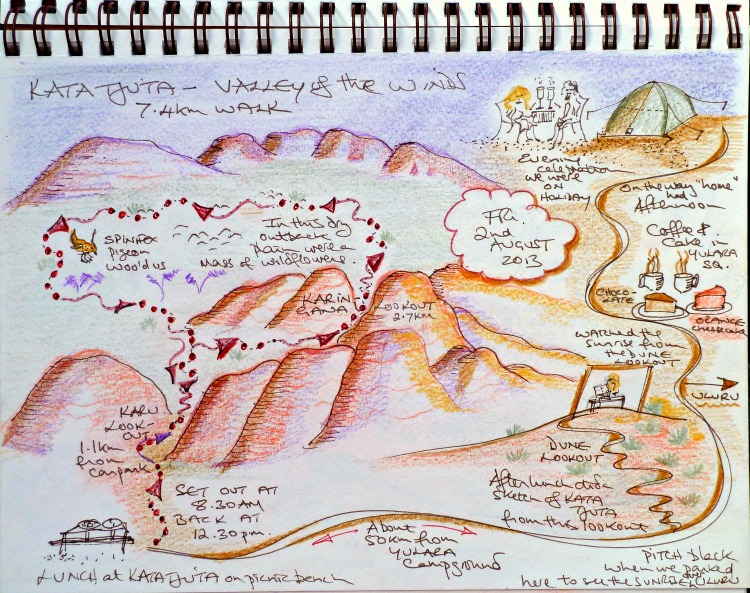 KATA TJUTA - VALLEY of the WINDS
7.4km WALK
Evening
celebration
we were
ON
HOLIDAY
On the way "home"
had
Afternoon
Coffee &
Cake in
YULARA
SQ.
CHOCO-
LATE
ORANGE
cheesecake
Fri.
2nd
AUGUST
2013
In this dry
outback
plain were a
mass of wildflowers.
SPINIFEX
pigeon
woo'd us
KARIN-
GANA
LOOKOUT
2.7KM
watched the
sunrise from
the DUNE
LOOKOUT
ULURU
KARU
LOOK-
OUT
1.1km
from
carpark
DUNE
LOOKOUT
After lunch did a
sketch of KATA
TJUTA
from this lookout
SET OUT AT
8.30AM
BACK AT
12.30pm.
About
50km from
YULARA
Campground
LUNCH at KATA TJUTA on picnic bench
PITCH black
when we parked
here to see the SUNRISE over ULURU